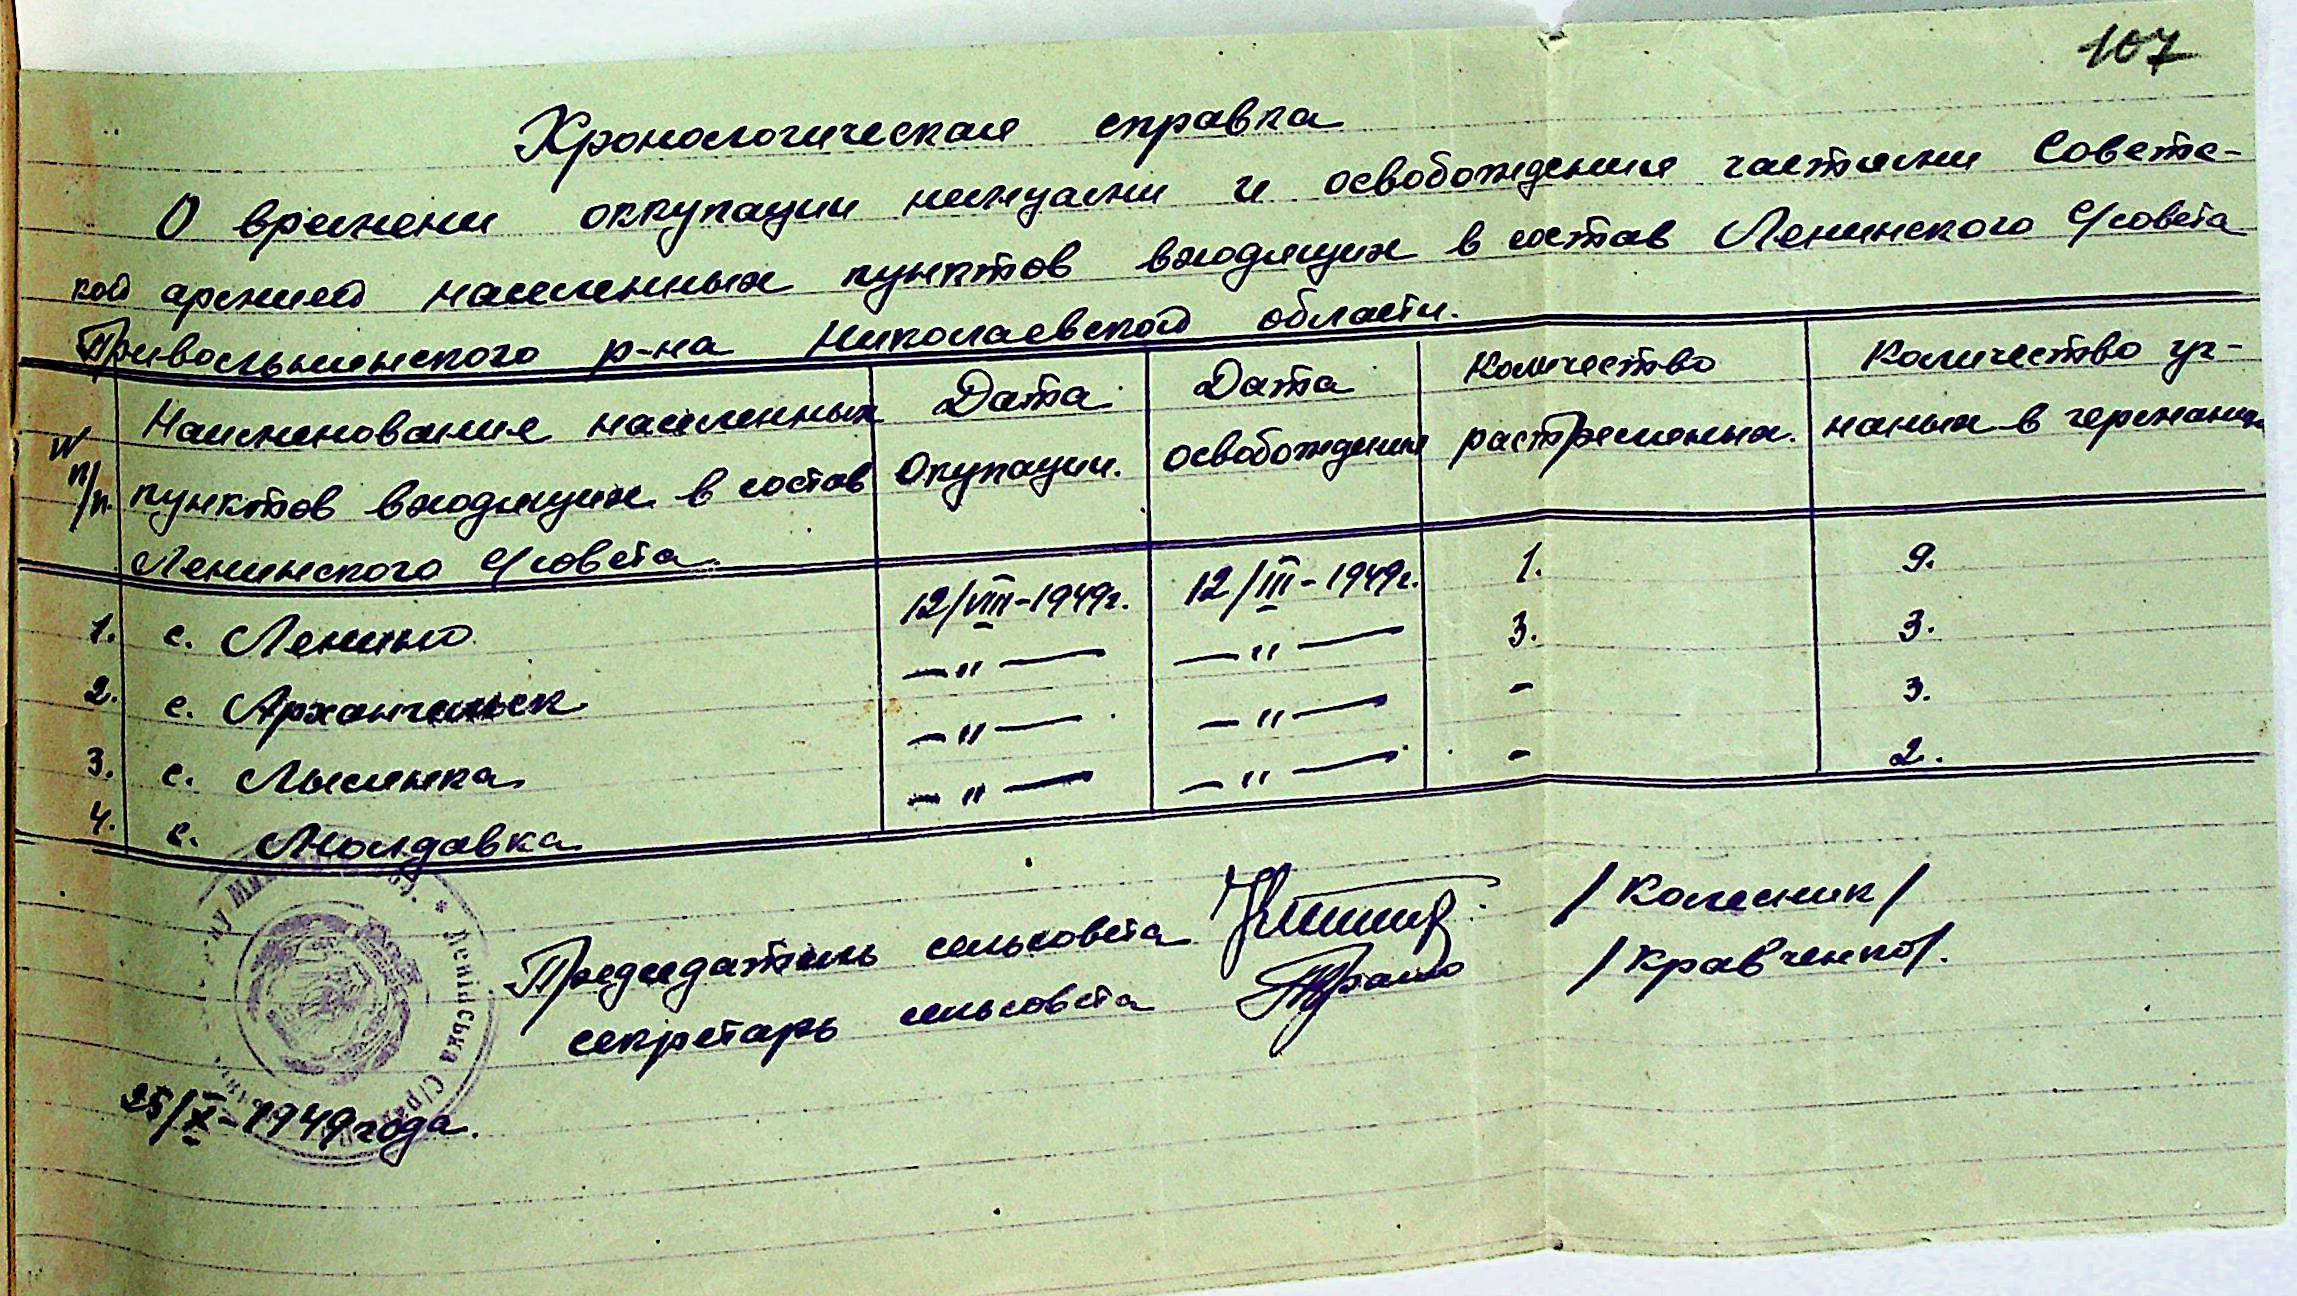 107
Хронологическая справка
О времени оккупации нимуами и освобождения частями Советс-
кой армией населенных пунктов входящих в состав Ленинского с/совета
Привольнинского р-на Николаевской области.
N п/п.
Наименования населенных пунктов входящих в состав Ленинского с/совета.
Дата Окупации.
Дата освобождения
Количество растреленных.
Количество уг-наных в германию
1. с. Ленино 12/VIII-1949г. 12/III-1949г. 1. 9.
2. с. Архангельск —"— —"— 3. 3.
3. с. Лысинка —"— —"— - 3.
4. с. Молдавка —"— —"— - 2.
Председатель сельсовета /Колесник/
секретарь сельсовета /Кравченко/.
Ленінська С/рада
25/X-1949 года.